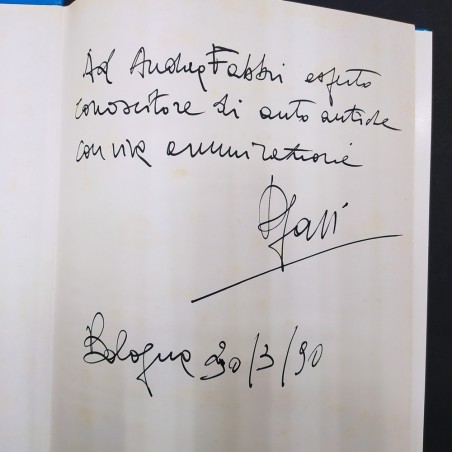 Ad Andrea Fabbri esperto
conoscitore di auto antiche
con viva ammirazione
Bologna 30/3/90